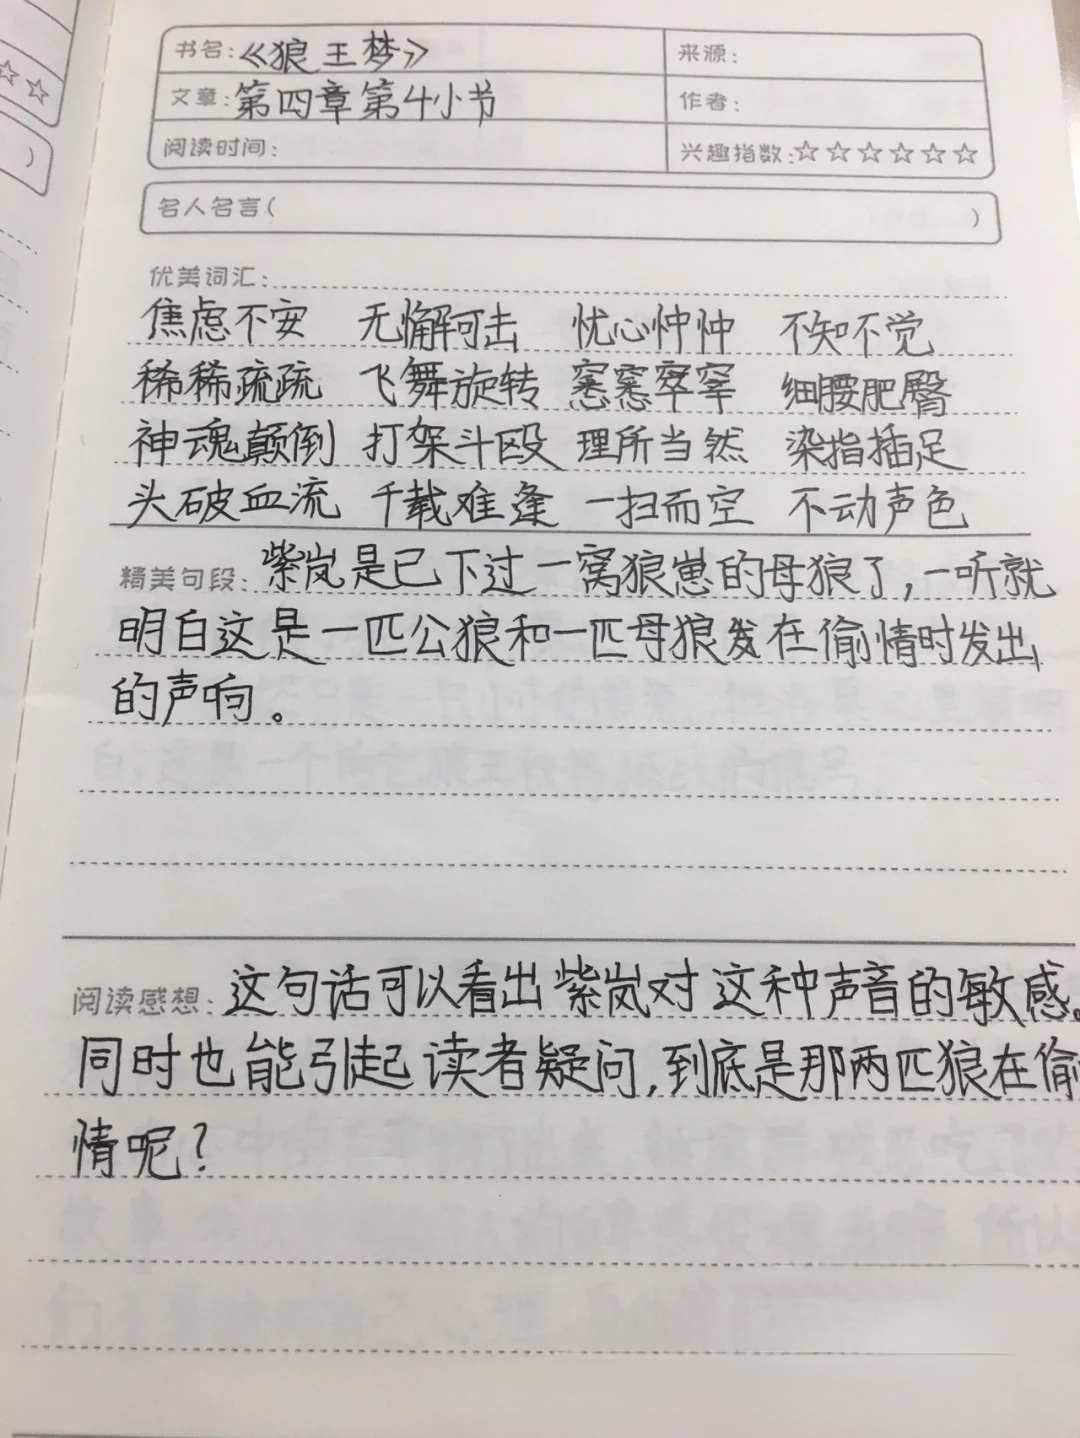 书名:《狼王梦》 来源:
文章:第四章第4小节 作者:
阅读时间: 兴趣指数:☆☆☆☆☆☆
名人名言( )
优美词汇:
焦虑不安 无懈可击 忧心忡忡 不知不觉
稀稀疏疏 飞舞旋转 窸窸窣窣 细腰肥臀
神魂颠倒 打架斗殴 理所当然 染指插足
头破血流 千载难逢 一扫而空 不动声色
精美句段: 紫岚是已下过一窝狼崽的母狼了,一听就
明白这是一匹公狼和一匹母狼发在偷情时发出
的声响。
阅读感想: 这句话可以看出紫岚对这种声音的敏感。
同时也能引起读者疑问,到底是那两匹狼在偷
情呢?